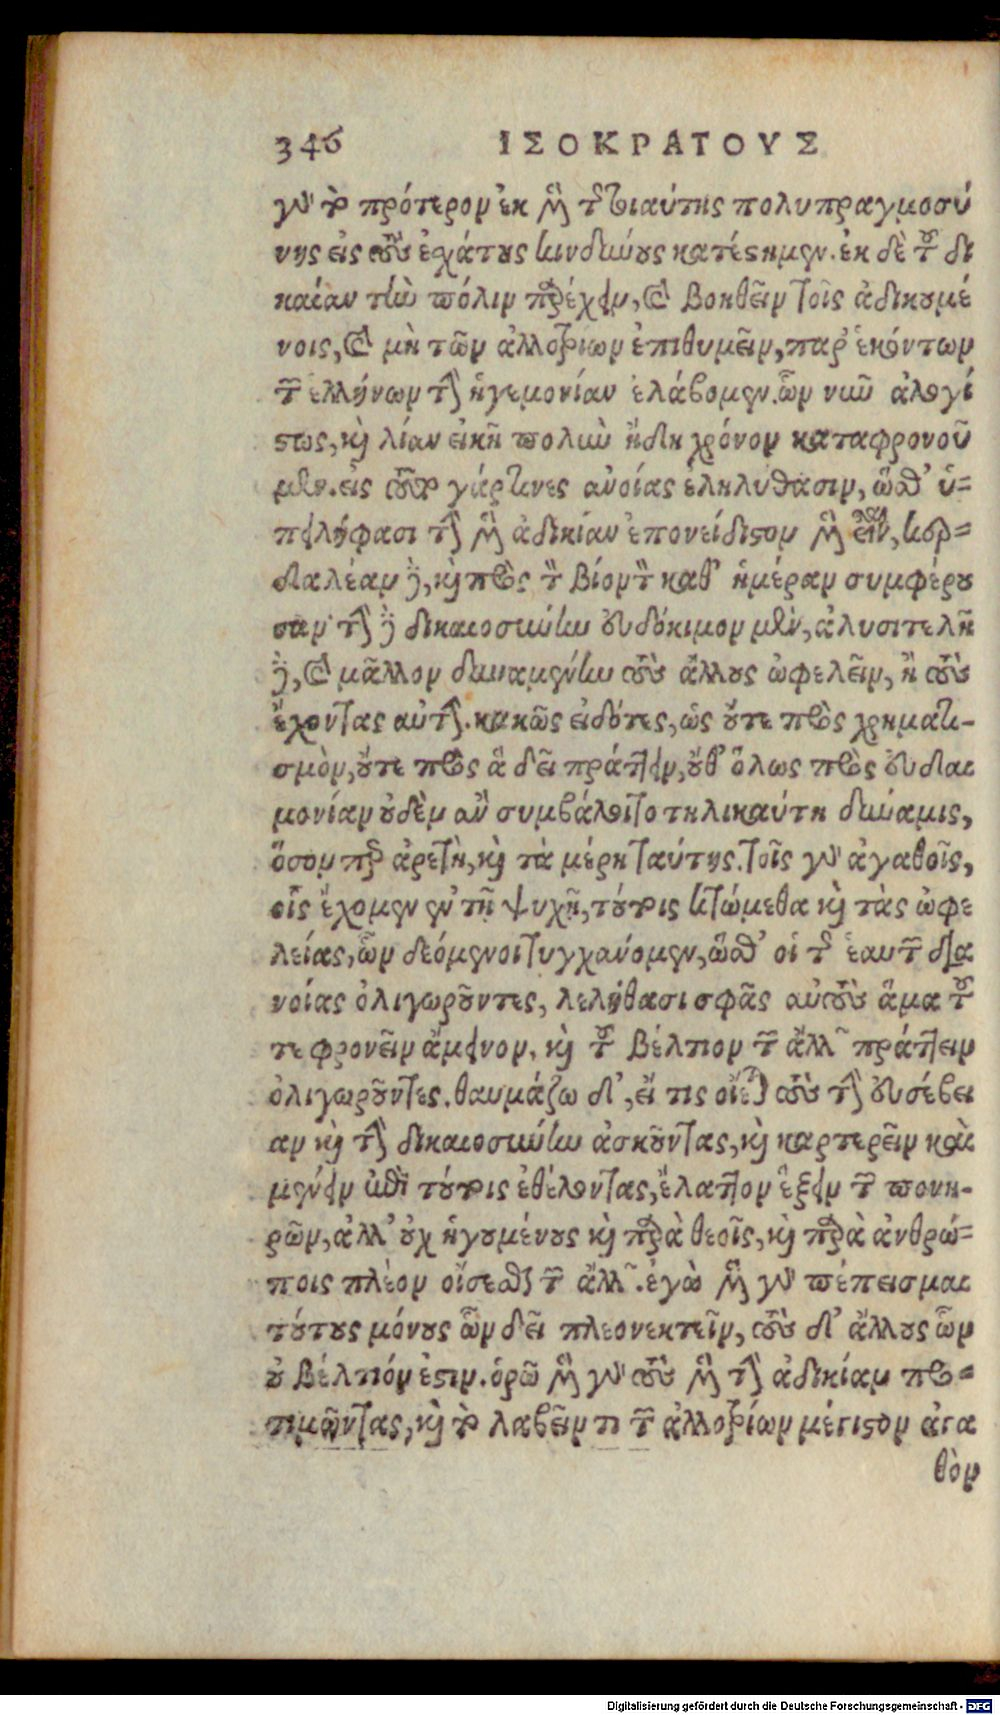 346 ΙΣΟΚΡΑΤΟΥΣ
γὰρ τὸ πρότερον ἐκ μὲν τῆς τοιαύτης πολυπραγμοσύ
νης εἰς τοὺς ἐσχάτους κινδύνους κατέστημεν. ἐκ δὲ τοῦ δι
καίαν τὴν πόλιν παρέχειν, καὶ βοηθεῖν τοῖς ἀδικουμέ
νοις, καὶ μὴ τῶν ἀλλοτρίων ἐπιθυμεῖν, παρ' ἑκόντων
τῶν ἑλλήνων τὴν ἡγεμονίαν ἐλάβομεν. ὧν νῦν ἀλογί
στως, καὶ λίαν εἰκῆ πολὺν ἤδη χρόνον καταφρονοῦ
μεν. εἰς τοῦτο γάρ τινες ἀνοίας ἐληλύθασιν, ὥσθ' ὑ-
πειλήφασι τὴν μὲν ἀδικίαν ἐπονείδιστον μὲν εἶναι, κερ-
δαλέαν δὲ, καὶ πρὸς τὸν βίον τὸν καθ' ἡμέραν συμφέρου
σαν· τὴν δὲ δικαιοσύνην εὐδόκιμον μὲν, ἀλυσιτελῆ
δὲ, καὶ μᾶλλον δυναμένην τοὺς ἄλλους ὠφελεῖν, ἢ τοὺς
ἔχοντας αὐτήν. κακῶς εἰδότες, ὡς οὔτε πρὸς χρηματι-
σμὸν, οὔτε πρὸς ἃ δεῖ πράττειν, οὔθ' ὅλως πρὸς εὐδαι
μονίαν οὐδὲν ἂν συμβάλοιτο τηλικαύτη δύναμις,
ὅσον περ ἀρετὴ, καὶ τὰ μέρη ταύτης. τοῖς γὰρ ἀγαθοῖς,
οἷς ἔχομεν ἐν τῇ ψυχῇ, τούτοις κτώμεθα καὶ τὰς ὠφε
λείας, ὧν δεόμενοι τυγχάνομεν, ὥσθ' οἱ τῆς ἑαυτῶν δια
νοίας ὀλιγωροῦντες, λελήθασι σφᾶς αὐτοὺς ἅμα τοῦ
τε φρονεῖν ἄμεινον, καὶ τοῦ βέλτιον τῶν ἄλλων πράττειν
ὀλιγωροῦντες. θαυμάζω δ', εἴ τις οἴεται τοὺς τὴν εὐσέβει
αν καὶ τὴν δικαιοσύνην ἀσκοῦντας, καὶ καρτερεῖν καὶ
μένειν ἐπὶ τούτοις ἐθέλοντας, ἔλαττον ἕξειν τῶν πονη-
ρῶν, ἀλλ' οὐχ ἡγουμένους καὶ παρὰ θεοῖς, καὶ παρὰ ἀνθρώ-
ποις πλέον οἴσεσθαι τῶν ἄλλων. ἐγὼ μὲν γὰρ πέπεισμαι
τούτους μόνους ὧν δεῖ πλεονεκτεῖν, τοὺς δ' ἄλλους ὧν
οὐ βέλτιόν ἐστιν. ὁρῶ μὲν γὰρ τοὺς μὲν τὴν ἀδικίαν προ-
τιμῶντας, καὶ τὸ λαβεῖν τι τῶν ἀλλοτρίων μέγιστον ἀγα
θὸν
Digitalisierung gefördert durch die Deutsche Forschungsgemeinschaft - DFG